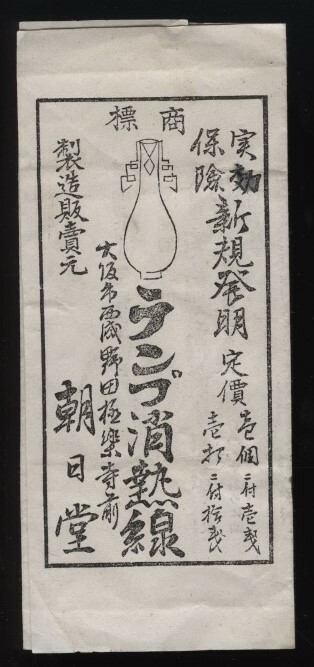 商標
実効
保険
新規発明
定價 壱個ニ付壱戔
壱打ニ付拾戔
ランプ消熱線
大阪市西成野田極樂寺前
製造販賣元
朝日堂